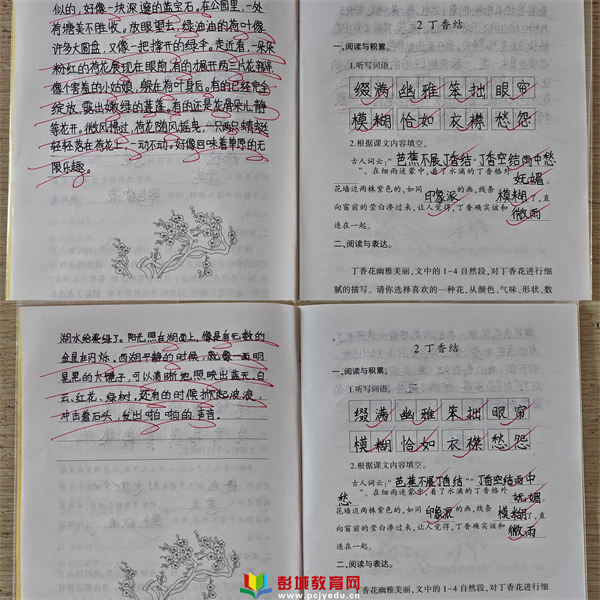 似的,好像一块深邃的蓝宝石。在公园里,一处
荷塘美不胜收。放眼望去,绿油油的荷叶像
许多大圆盘,又像一把撑开的绿伞。走近看,一朵朵
粉红的荷花展现在眼前,有的才展开两三片花瓣
像个害羞的小姑娘,躲在荷叶身后。有的已经完全
绽放,露出嫩绿的莲蓬。有的还是花骨朵儿,静
等花开。微风拂过,荷花随风摇曳,一只两只蜻蜓
轻轻落在荷花上,一动不动,好像回味着草原的无
限乐趣。
2 丁香结
一、阅读与积累。
1.听写词语。
缀满 幽雅 笨拙 眼帘
模糊 恰如 衣襟 愁怨
2.根据课文内容填空。
古人词云:“芭蕉不展丁香结”“丁香空结雨中愁
”。在细雨迷蒙中,着了水滴的丁香格外妩媚。
花墙边两株紫色的,如同印象派的画,线条模糊了,直
向窗前的莹白渗过来。让人觉得,丁香确实该和微雨
连在一起。
二、阅读与表达。
丁香花幽雅美丽,文中的1-4自然段,对丁香花进行细
腻的描写。请你选择喜欢的一种花,从颜色、气味、形状、数
湖水给染绿了。阳光照在湖面上,像是有无数的
金星在闪烁。西湖平静的时候,就像一面明
晃晃的大镜子,可以清晰地照映出蓝天,白
云,红花,绿树,还有的时候掀起波浪,
冲击着石头,发出啪啪的声音。
2 丁香结
一、阅读与积累。
1.听写词语。
缀满 幽雅 笨拙 眼帘
模糊 恰如 衣襟 愁怨
2.根据课文内容填空。
古人词云:“芭蕉不展丁香结”“丁香空结雨中
愁”。在细雨迷蒙中,着了水滴的丁香格外妩媚。
花墙边两株紫色的,如同印象派的画,线条模糊了,直
向窗前的莹白渗过来。让人觉得,丁香确实该和微雨
连在一起。
二、阅读与表达。
丁香花幽雅美丽,文中的1-4自然段,对丁香花进行细
彭城教育网
www.pcjyedu.cn